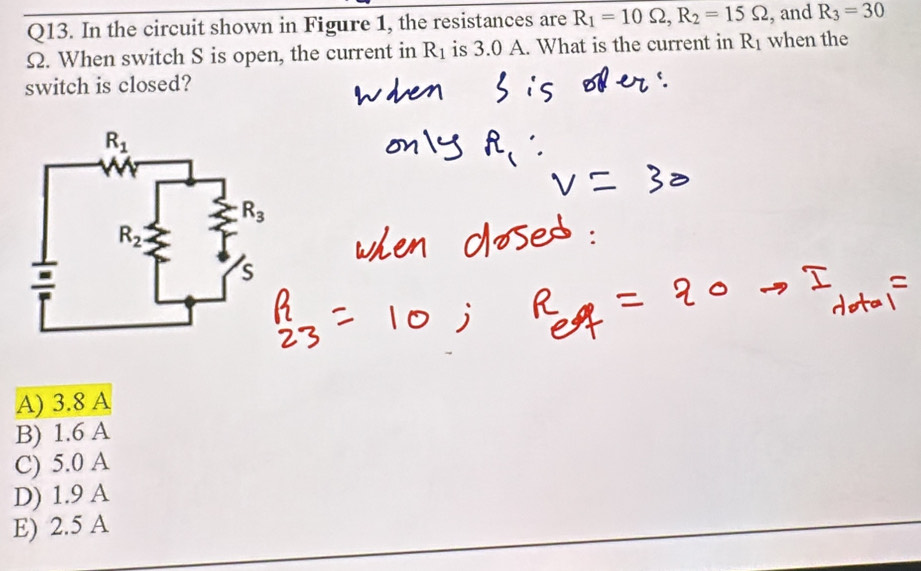 Q13. In the circuit shown in Figure 1, the resistances are R₁ = 10 Ω, R₂ = 15 Ω, and R₃ = 30
Ω. When switch S is open, the current in R₁ is 3.0 A. What is the current in R₁ when the
switch is closed?
when S is open:
only R₁:
V = 30
R₁
R₂
R₃
S
when closed:
R₂₃ = 10 ; R_eq = 20 → I_total =
A) 3.8 A
B) 1.6 A
C) 5.0 A
D) 1.9 A
E) 2.5 A